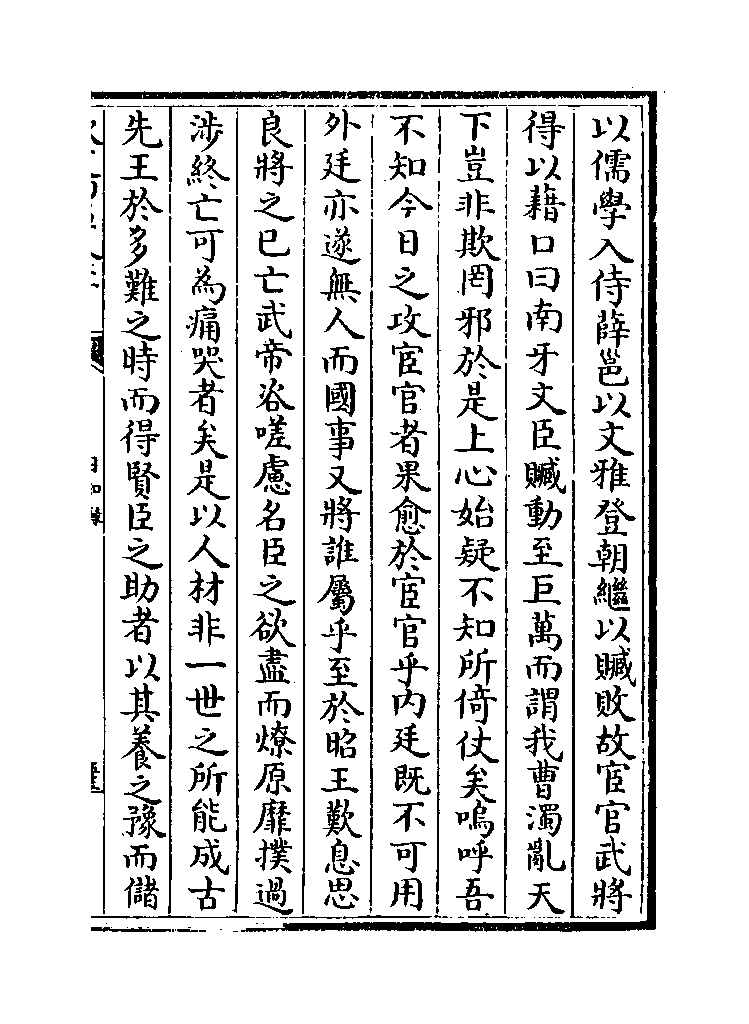 以儒學入侍薛邕以文雅登朝繼以贓敗故宦官武將
得以藉口曰南牙文臣贓動至巨萬而謂我曹濁亂天
下豈非欺罔邪於是上心始疑不知所倚仗矣嗚呼吾
不知今日之攻宦官者果愈於宦官乎内廷既不可用
外廷亦遂無人而國事又將誰屬乎至於昭王歎息思
良將之已亡武帝咨嗟慮名臣之欲盡而燎原靡撲過
涉終亡可為痛哭者矣是以人材非一世之所能成古
先王於多難之時而得賢臣之助者以其養之豫而儲
日知錄